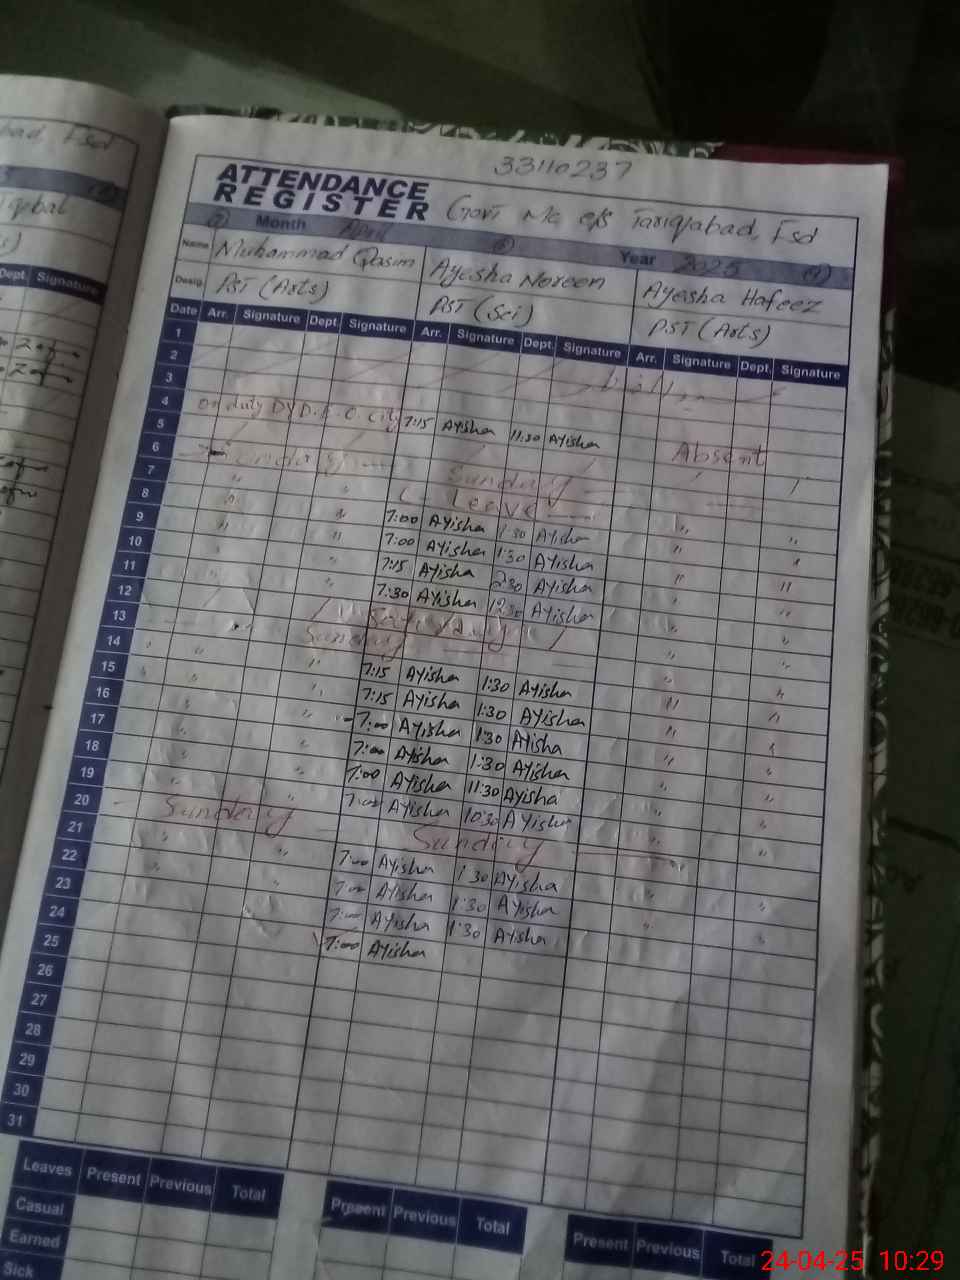 33110237
bad, Fsd
ATTENDANCE
REGISTER
Govt Mc e/s Tariqabad, Fsd
Month April Year 2025
Name Muhammad Qasim Ayesha Noreen Ayesha Hafeez
Desig. PST (Arts) PST (Sci) PST (Arts)
Dept. Signature
Date Arr. Signature Dept. Signature Arr. Signature Dept. Signature Arr. Signature Dept. Signature
1
2
3
4 on duty DYD.E.O. City 7:15 Ayisha 11:30 Ayisha Absent
5
6 Sunday Sunday
7 " " Leave
8 " " 7:00 Ayisha 1:30 Ayisha " "
9 " " 7:00 Ayisha 1:30 Ayisha " "
10 " 7:15 Ayisha 2:30 Ayisha " "
11 7:30 Ayisha 12:30 Ayisha " "
12
13 Sunday " "
14 " " " 7:15 Ayisha 1:30 Ayisha " "
15 " " " 7:15 Ayisha 1:30 Ayisha " "
16 " " 7:00 Ayisha 1:30 Ayisha " "
17 " " 7:00 Ayisha 1:30 Ayisha " "
18 " " 7:00 Ayisha 11:30 Ayisha " "
19 " " 7:00 Ayisha 10:30 Ayisha " "
20 Sunday Sunday
21 " " 7:00 Ayisha 1:30 Ayisha " "
22 " " 7:00 Ayisha 1:30 Ayisha " "
23 7:00 Ayisha 1:30 Ayisha " "
24 7:00 Ayisha
25
26
27
28
29
30
31
Leaves Present Previous Total Present Previous Total Present Previous Total
Casual
Earned
Sick
24-04-25 10:29